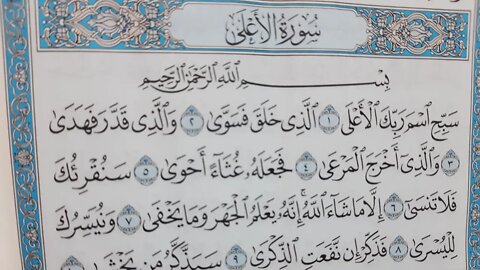 سُورَةُ الأَعْلَىٰ
بِسْمِ اللَّهِ الرَّحْمَٰنِ الرَّحِيمِ
سَبِّحِ اسْمَ رَبِّكَ الْأَعْلَى ١ الَّذِي خَلَقَ فَسَوَّىٰ ٢ وَالَّذِي قَدَّرَ فَهَدَىٰ
٣ وَالَّذِي أَخْرَجَ الْمَرْعَىٰ ٤ فَجَعَلَهُ غُثَاءً أَحْوَىٰ ٥ سَنُقْرِئُكَ
فَلَا تَنسَىٰ ٦ إِلَّا مَا شَاءَ اللَّهُ إِنَّهُ يَعْلَمُ الْجَهْرَ وَمَا يَخْفَىٰ ٧ وَنُيَسِّرُكَ
لِلْيُسْرَىٰ ٨ فَذَكِّرْ إِن نَّفَعَتِ الذِّكْرَىٰ ٩ سَيَذَّكَّرُ مَن يَخْشَىٰ